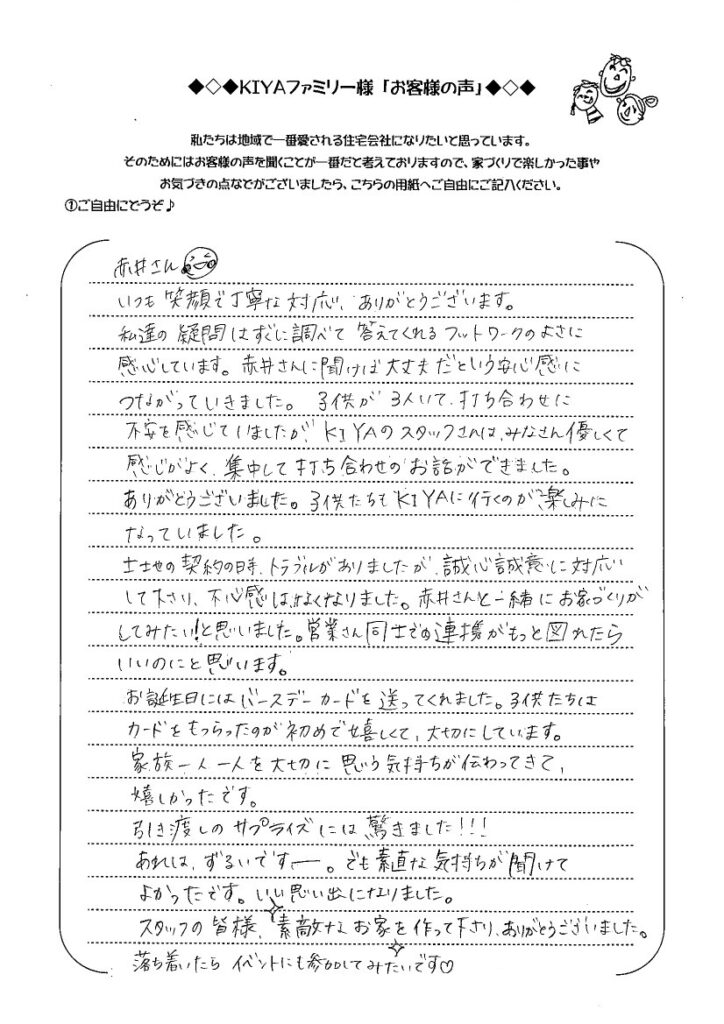 ◆◇◆KIYAファミリー様「お客様の声」◆◇◆
私たちは地域で一番愛される住宅会社になりたいと思っています。
そのためにはお客様の声を聞くことが一番だと考えておりますので、家づくりで楽しかった事や
お気づきの点などがございましたら、こちらの用紙へご自由にご記入ください。
①ご自由にどうぞ♪
赤井さん
いつも笑顔で丁寧な対応、ありがとうございます。
私達の疑問はすぐに調べて答えてくれるフットワークのよさに
感心しています。赤井さんに聞けば大丈夫だという安心感に
つながっていきました。子供が3人いて、打ち合わせに
不安を感じていましたが、KIYAのスタッフさんは、みなさん優しくて
感じがよく、集中して打ち合わせのお話ができました。
ありがとうございました。子供たちもKIYAに行くのが楽しみに
なっていました。
土地の契約の時、トラブルがありましたが、誠心誠意に対応
して下さり、不信感はなくなりました。赤井さんと一緒にお家づくりが
してみたい!と思いました。営業さん同士での連携がもっと図れたら
いいのにと思います。
お誕生日にはバースデーカードを送ってくれました。子供たちは
カードをもらったのが初めで嬉しくて、大切にしています。
家族一人一人を大切に思う気持ちが伝わってきて、
嬉しかったです。
引き渡しのサプライズには驚きました!!!
あれは、ずるいですー。でも素直な気持ちが聞けて
よかったです。いい思い出になりました。
スタッフの皆様、素敵なお家を作って下さり、ありがとうございました。
落ち着いたらイベントにも参加してみたいです♡